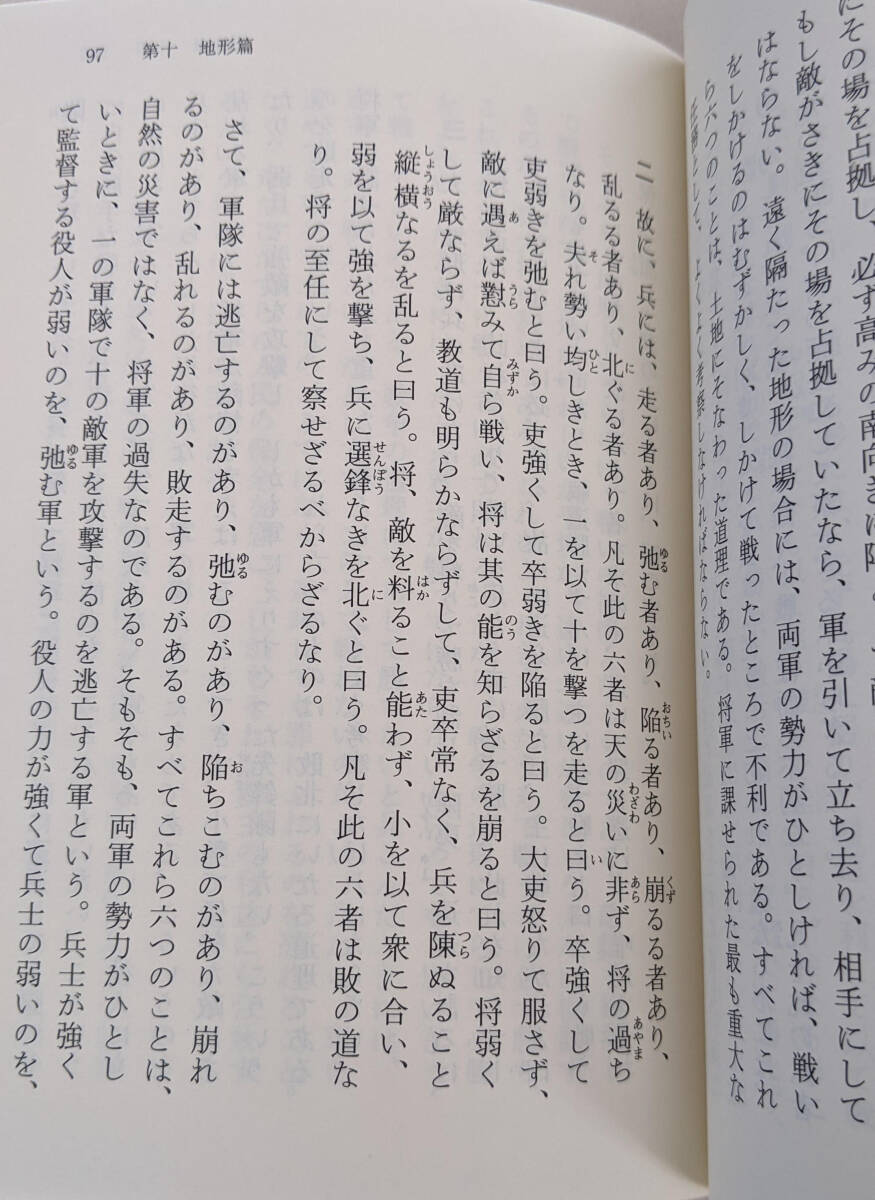 にその場を占拠し、必ず高みの南向き
もし敵がさきにその場を占拠していたなら、軍を引いて立ち去り、相手にして
はならない。遠く隔たった地形の場合には、両軍の勢力がひとしければ、戦い
をしかけるのはむずかしく、しかけて戦ったところで不利である。すべてこれ
ら六つのことは、土地にそなわった道理である。将軍に課せられた最も重大な
任務として、よくよく考察しなければならない。
97 第十 地形篇
二 故に、兵には、走る者あり、弛む者あり、陥る者あり、崩るる者あり、
乱るる者あり、北ぐる者あり。凡そ此の六者は天の災いに非ず、将の過ち
なり。夫れ勢い均しきとき、一を以て十を撃つを走ると曰う。卒強くして
吏弱きを弛むと曰う。吏強くして卒弱きを陥ると曰う。大吏怒りて服さず、
敵に遇えば懟みて自ら戦い、将は其の能を知らざるを崩ると曰う。将弱く
して厳ならず、教道も明らかならずして、吏卒常なく、兵を陳ぬること
縦横なるを乱ると曰う。将、敵を料ること能わず、小を以て衆に合い、
弱を以て強を撃ち、兵に選鋒なきを北ぐと曰う。凡そ此の六者は敗の道な
り。将の至任にして察せざるべからざるなり。
さて、軍隊には逃亡するのがあり、弛むのがあり、陥ちこむのがあり、崩れ
るのがあり、乱れるのがあり、敗走するのがある。すべてこれら六つのことは、
自然の災害ではなく、将軍の過失なのである。そもそも、両軍の勢力がひとし
いときに、一の軍隊で十の敵軍を攻撃するのを逃亡する軍という。兵士が強く
て監督する役人が弱いのを、弛む軍という。役人の力が強くて兵士の弱いのを、